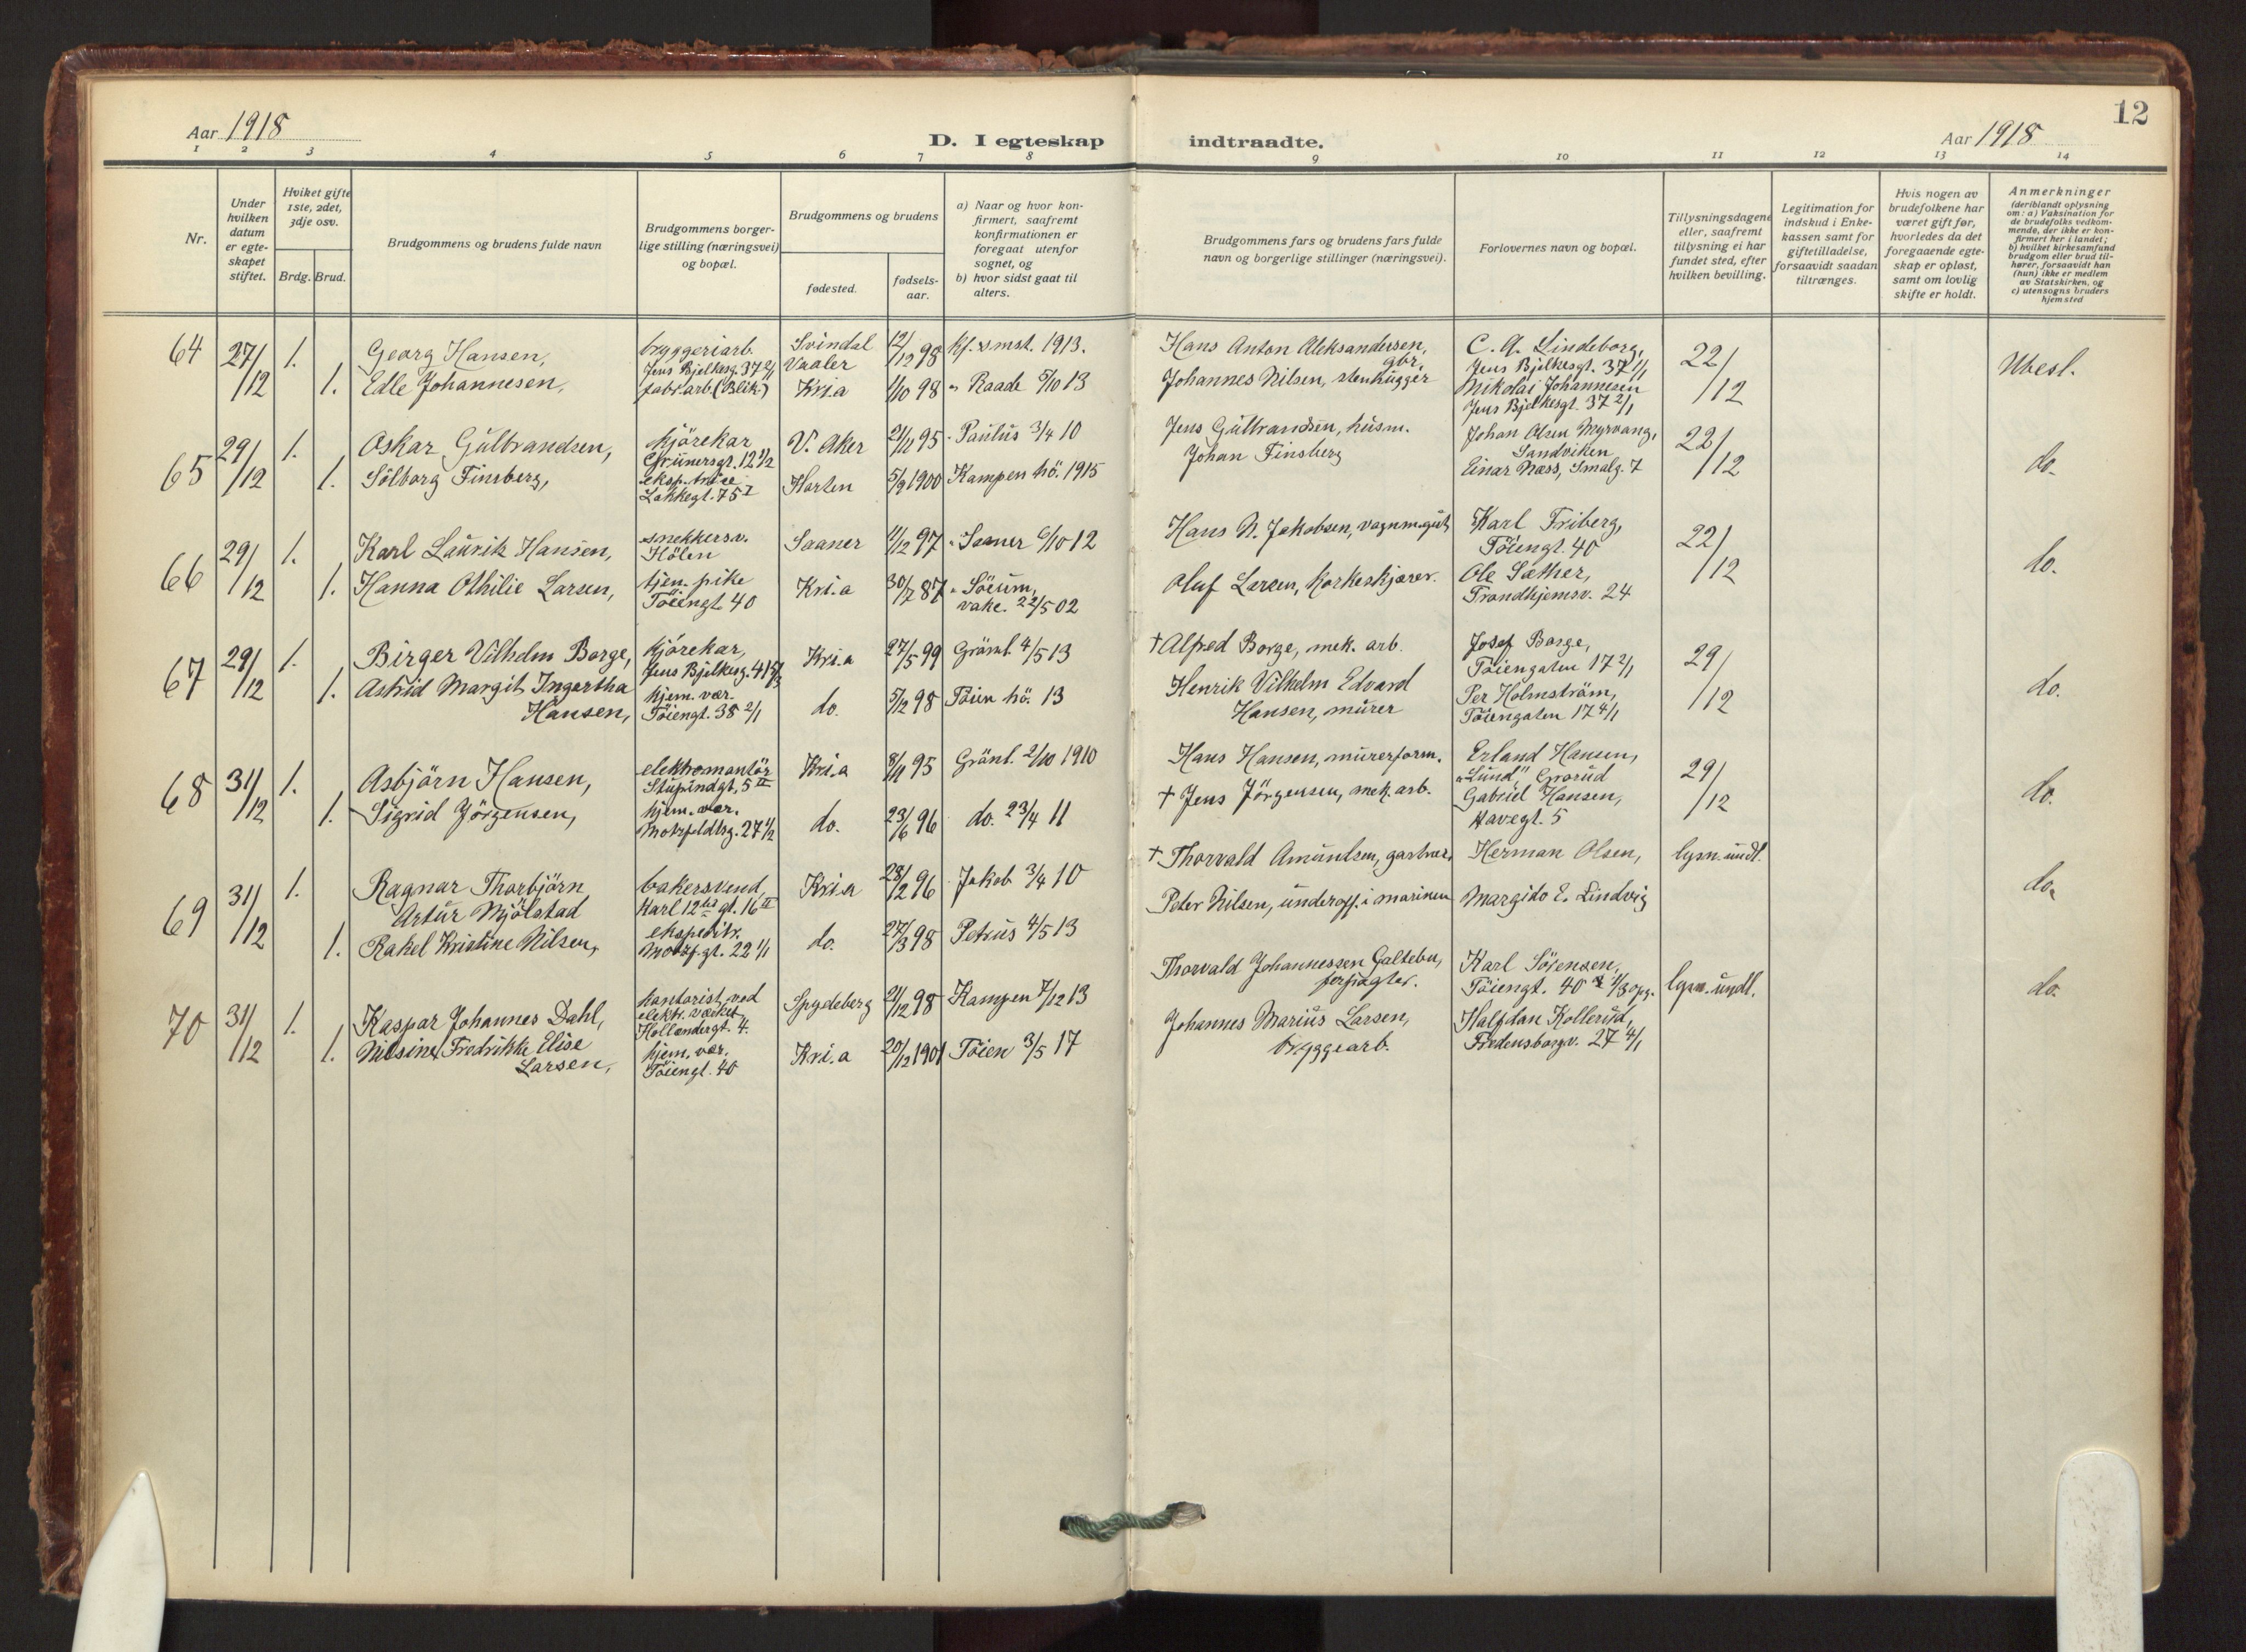 12
Aar 1918
D. I egteskap indtraadte.
Aar 1918
1 2 3 4 5 6 7 8 9 10 11 12 13 14
Nr.
Under hvilken datum er egteskapet stiftet.
Hviket gifte 1ste, 2det, 3dje osv.
Brdg. Brud.
Brudgommens og brudens fulde navn
Brudgommens borgerlige stilling (næringsvei) og bopæl.
Brudgommens og brudens
fødested.
fødselsaar.
a) Naar og hvor konfirmert, saafremt konfirmationen er foregaat utenfor sognet, og
b) hvor sidst gaat til alters.
Brudgommens fars og brudens fars fulde navn og borgerlige stillinger (næringsvei).
Forlovernes navn og bopæl.
Tillysningsdagene eller, saafremt tillysning ei har fundet sted, efter hvilken bevilling.
Legitimation for indskud i Enkekassen samt for giftetilladelse, forsaavidt saadan tiltrænges.
Hvis nogen av brudefolkene har været gift før, hvorledes da det foregaaende egteskap er opløst, samt om lovlig skifte er holdt.
Anmerkninger (deriblandt oplysning om: a) Vaksination for de brudefolks vedkommende, der ikke er konfirmert her i landet; b) hvilket kirkesamfund brudgom eller brud tilhører, forsaavidt han (hun) ikke er medlem av Statskirken, og c) utensogns bruders hjemsted
64 27/12 1. Georg Hansen, bryggeriarb. Jens Bjelkesg. 37 2/1 Svindal Vaaler 12/12 98 kf. vmst. 1913. Hans Anton Aleksandersen, gbr. C. A. Lindeborg, Jens Bjelkesgt. 37 1/1 22/12 Ubesl.
1. Edle Johannesen, fabr.arb. (Blik) Kri.a 1/10 98 " Raade 5/10 13 Johannes Nilsen, stenhugger Nikolai Johannesen Jens Bjelkesgt. 37 2/1
65 29/12 1. Oskar Gulbrandsen, kjörekar Grünersgt. 12 1/2 V. Aker 21/11 95 " Paulus 3/4 10 Jens Gulbrandsen, husm. Johan Olsen Myrvang, Sandviken 22/12 do.
1. Sölborg Finsberg, eksp.trise Lakkegt. 75 I Horten 5/9 1900 Kampen hö. 1915 Johan Finsberg Einar Næss, Smalg. 7
66 29/12 1. Karl Lauritz Hansen, snekkersv. Hölen Saaner 11/12 97 " Saaner 6/10 12 Hans N. Jakobsen, vognm.gut Karl Friberg, Töiengt. 40 22/12 do.
1. Hanna Othilie Larsen, tjen. pike Töiengt. 40 Kri.a 30/7 87 " Söeum, vake. 22/5 02 Oluf Larsen, korkeskjærer. Ole Sæther, Trondhjemsv. 24
67 29/12 1. Birger Vilhelm Borge, kjörekar, Jens Bjelkesg. 41 Kri.a 27/5 99 Grönl. 4/5 13 † Alfred Borge, mek. arb. Josef Borge, Töiengaten 17 2/1 29/12 do.
1. Astrid Margit Ingertha Hansen, hjem. vær. Töiengt. 38 2/1 do. 5/12 98 Töien hö. 13 Henrik Vilhelm Edvard Hansen, murer Per Holmström, Töiengaten 17 4/1
68 31/12 1. Asbjörn Hansen, elektromontör Stupindgt. 5 II Kri.a 8/11 95 Grönl. 2/10 1910 Hans Hansen, murerform. Erland Hansen, "Lund", Grorud 29/12 do.
1. Sigrid Jörgensen, hjem. vær. Motzfeldtsg. 27 1/2 do. 23/6 96 do. 23/4 11 † Jens Jörgensen, mek. arb. Gabriel Hansen, Havegt. 5
69 31/12 1. Ragnar Thorbjörn Artur Mjölstad bakersvend, Karl 12tes gt. 16 II Kri.a 28/12 96 Jakob 3/4 10 † Thorvald Amundsen, gartner, Herman Olsen, lysn. undl. do.
1. Rakel Kristine Nilsen, ekspeditr. Motzf.gt. 22 1/1 do. 27/3 98 Petrus 4/5 13 Peter Nilsen, underoff. i marinen Margido E. Lindvig
70 31/12 1. Kaspar Johannes Dahl, kontorist ved elektr. værket, Hollendergt. 4. Spydeberg 21/12 98 Kampen 7/12 13 Thorvald Johannessen Galtebu, forpagter. Karl Sörensen, Töiengt. 40 1/3 opg. lysn. undl. do.
1. Nilsine Fredrikke Elise Larsen, hjem. vær. Töiengt. 40 Kri.a 20/12 1901 Töien 3/5 17 Johannes Marius Larsen, bryggearb. Halfdan Kollerud, Fredensborgv. 27 4/1